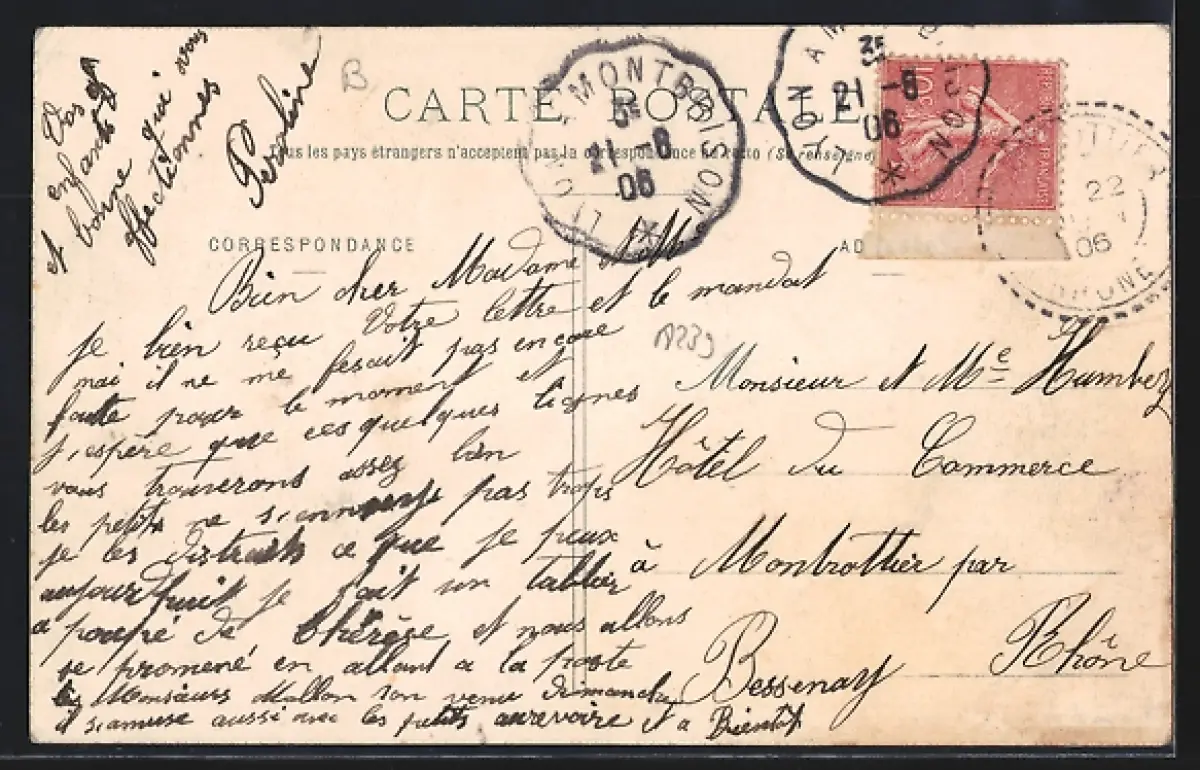 CARTE POSTALE
Tous les pays étrangers n'acceptent pas la correspondance au recto (Se renseigner
CORRESPONDANCE
AD
LYON A MONTBRISON
3E
21 -8
06
LYON A M
3E
21 -8
06
22
06
RHONE
B
A239
Bien cher Madame et Mr
je bien reçu Votre lettre et le mandat
mai il ne me fesait pas encore
faute payer le moment et
j,espère que ces quelques lignes
vous trouverons assez bien
les petits ne s,ennuye pas trops
je les distrait ce que je peux
aujourd'huit je fait un tablier
a poupé de Thérèse et nous allons
se promené en allant a la poste
Monsieurs Mallon son venu dimanche
il s,amuse aussi avec les petits aurevoire et a Bientôt
Vos
enfants et
et bonne qui vous
affectionnes
Pervoline
Monsieur et Me Humbez
Hôtel du Commerce
à Montrottier par
Bessenay
Rhône